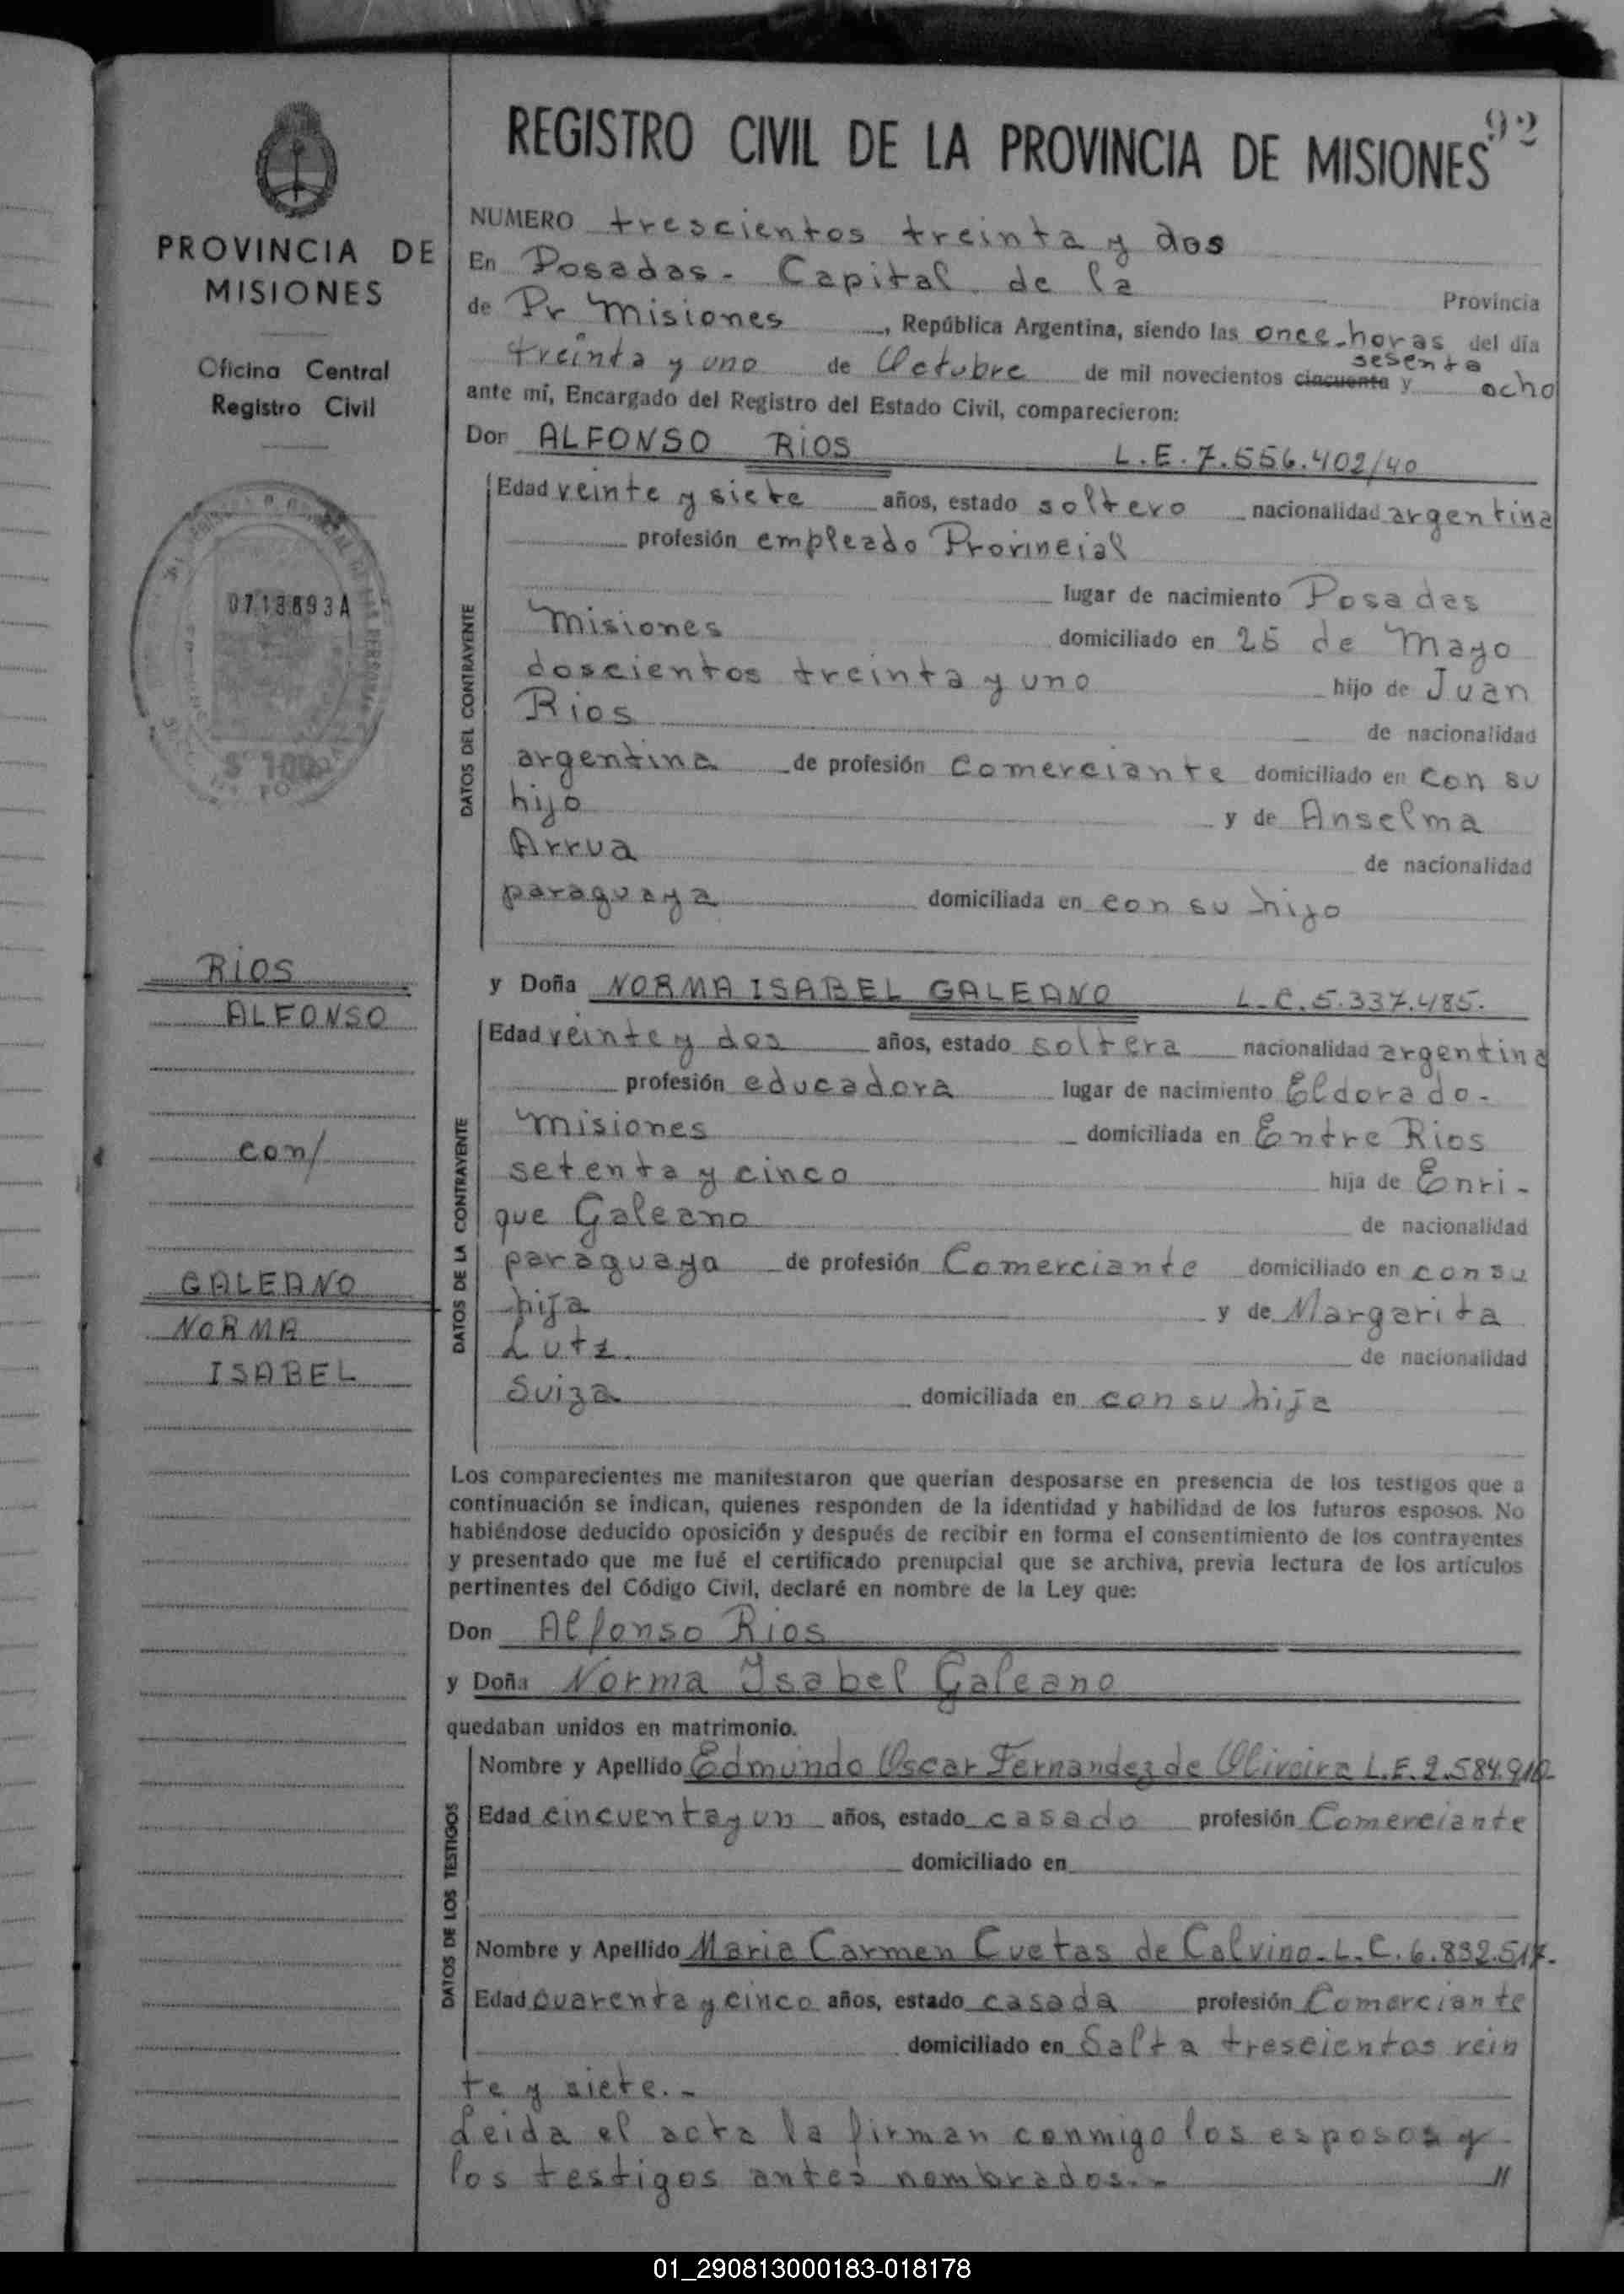 92
PROVINCIA DE
MISIONES
Oficina Central
Registro Civil
RIOS
ALFONSO
con/
GALEANO
NORMA
ISABEL
REGISTRO CIVIL DE LA PROVINCIA DE MISIONES
NUMERO trescientos treinta y dos
En Posadas - Capital de la Provincia
de Pr Misiones, República Argentina, siendo las once horas del día
treinta y uno de Octubre de mil novecientos cincuenta sesenta y ocho
ante mí, Encargado del Registro del Estado Civil, comparecieron:
Don ALFONSO RIOS L.E. 7.556.402/40
DATOS DEL CONTRAYENTE
Edad veinte y siete años, estado soltero nacionalidad argentina
profesión empleado Provincial
lugar de nacimiento Posadas
Misiones domiciliado en 25 de Mayo
doscientos treinta y uno hijo de Juan
Rios de nacionalidad
argentina de profesión Comerciante domiciliado en con su
hijo y de Anselma
Arrua de nacionalidad
paraguaya domiciliada en con su hijo
y Doña NORMA ISABEL GALEANO L.C. 5.337.485.
DATOS DE LA CONTRAYENTE
Edad veinte y dos años, estado soltera nacionalidad argentina
profesión educadora lugar de nacimiento Eldorado -
Misiones domiciliada en Entre Rios
setenta y cinco hija de Enri-
que Galeano de nacionalidad
paraguaya de profesión Comerciante domiciliado en con su
hija y de Margarita
Lutz de nacionalidad
Suiza domiciliada en con su hija
Los comparecientes me manifestaron que querían desposarse en presencia de los testigos que a
continuación se indican, quienes responden de la identidad y habilidad de los futuros esposos. No
habiéndose deducido oposición y después de recibir en forma el consentimiento de los contrayentes
y presentado que me fué el certificado prenupcial que se archiva, previa lectura de los artículos
pertinentes del Código Civil, declaré en nombre de la Ley que:
Don Alfonso Rios
y Doña Norma Isabel Galeano
quedaban unidos en matrimonio.
DATOS DE LOS TESTIGOS
Nombre y Apellido Edmundo Oscar Fernandez de Oliveira L.E. 2.584.910-
Edad cincuenta y un años, estado casado profesión Comerciante
domiciliado en
Nombre y Apellido Maria Carmen Cuetas de Calvino - L.C. 6.832.517.-
Edad cuarenta y cinco años, estado casada profesión Comerciante
domiciliado en Salta trescientos vein
te y siete.-
Leida el acta la firman conmigo los esposos y
los testigos antes nombrados.- //
01_290813000183-018178